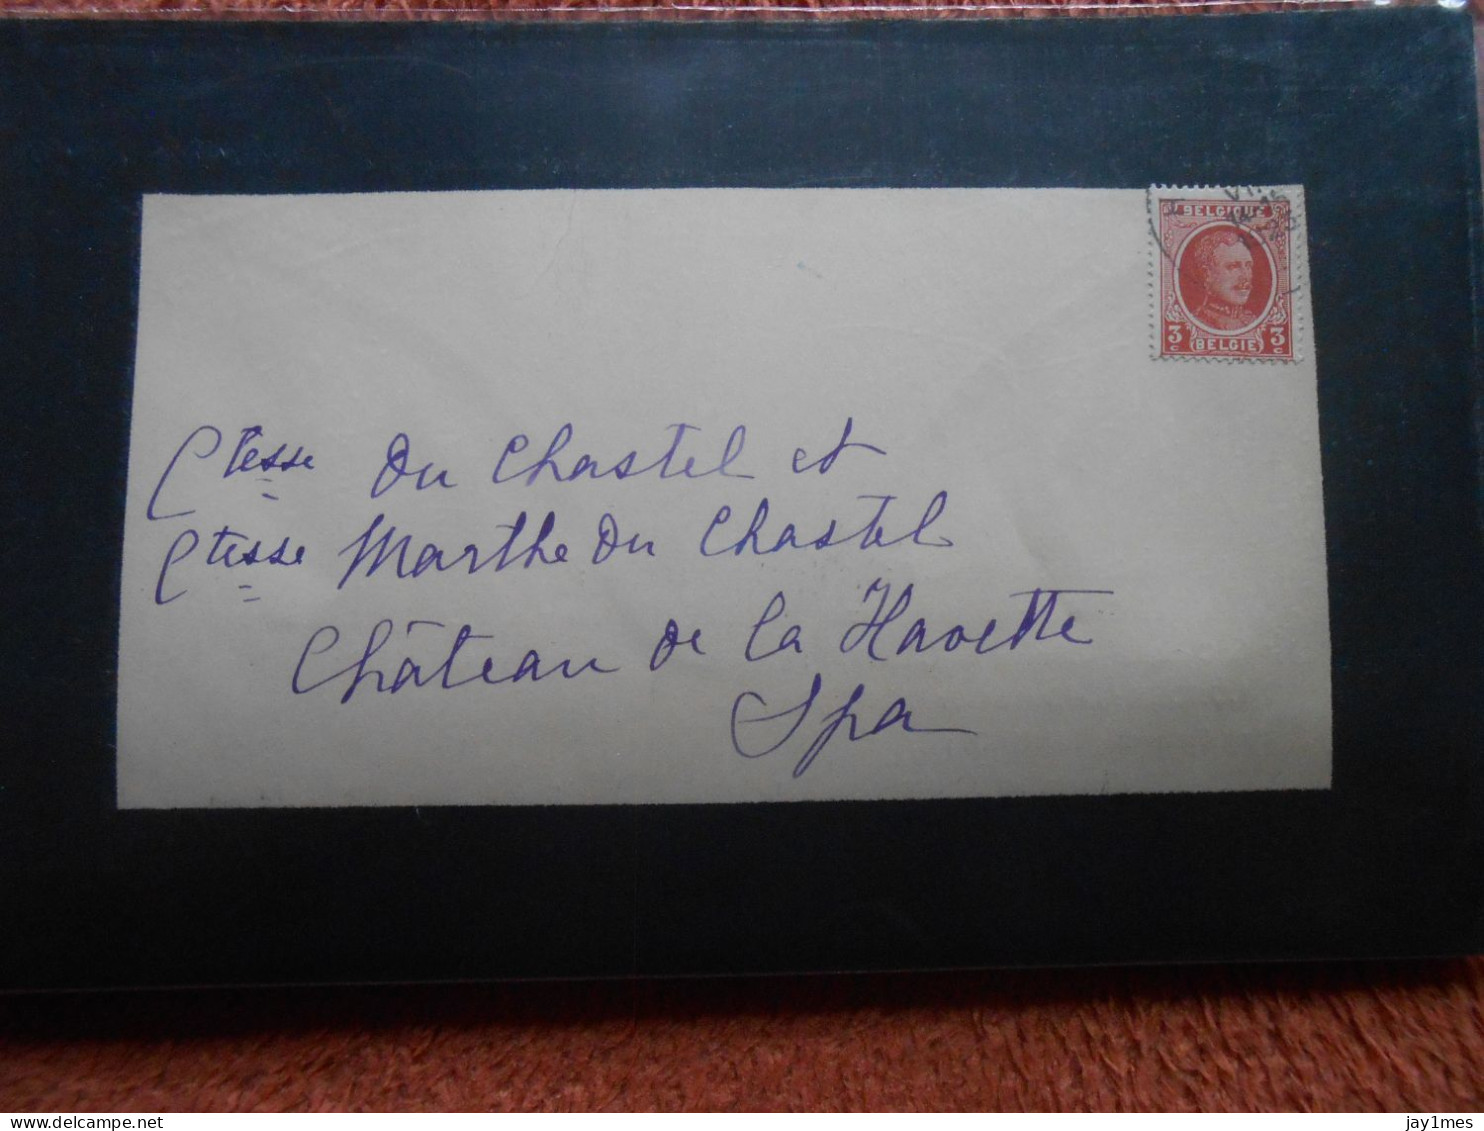 BELGIQUE
3 c BELGIE 3 c
Ctesse Du Chastel et
Ctesse Marthe Du Chastel
Château de la Havette
Spa
jay1mes